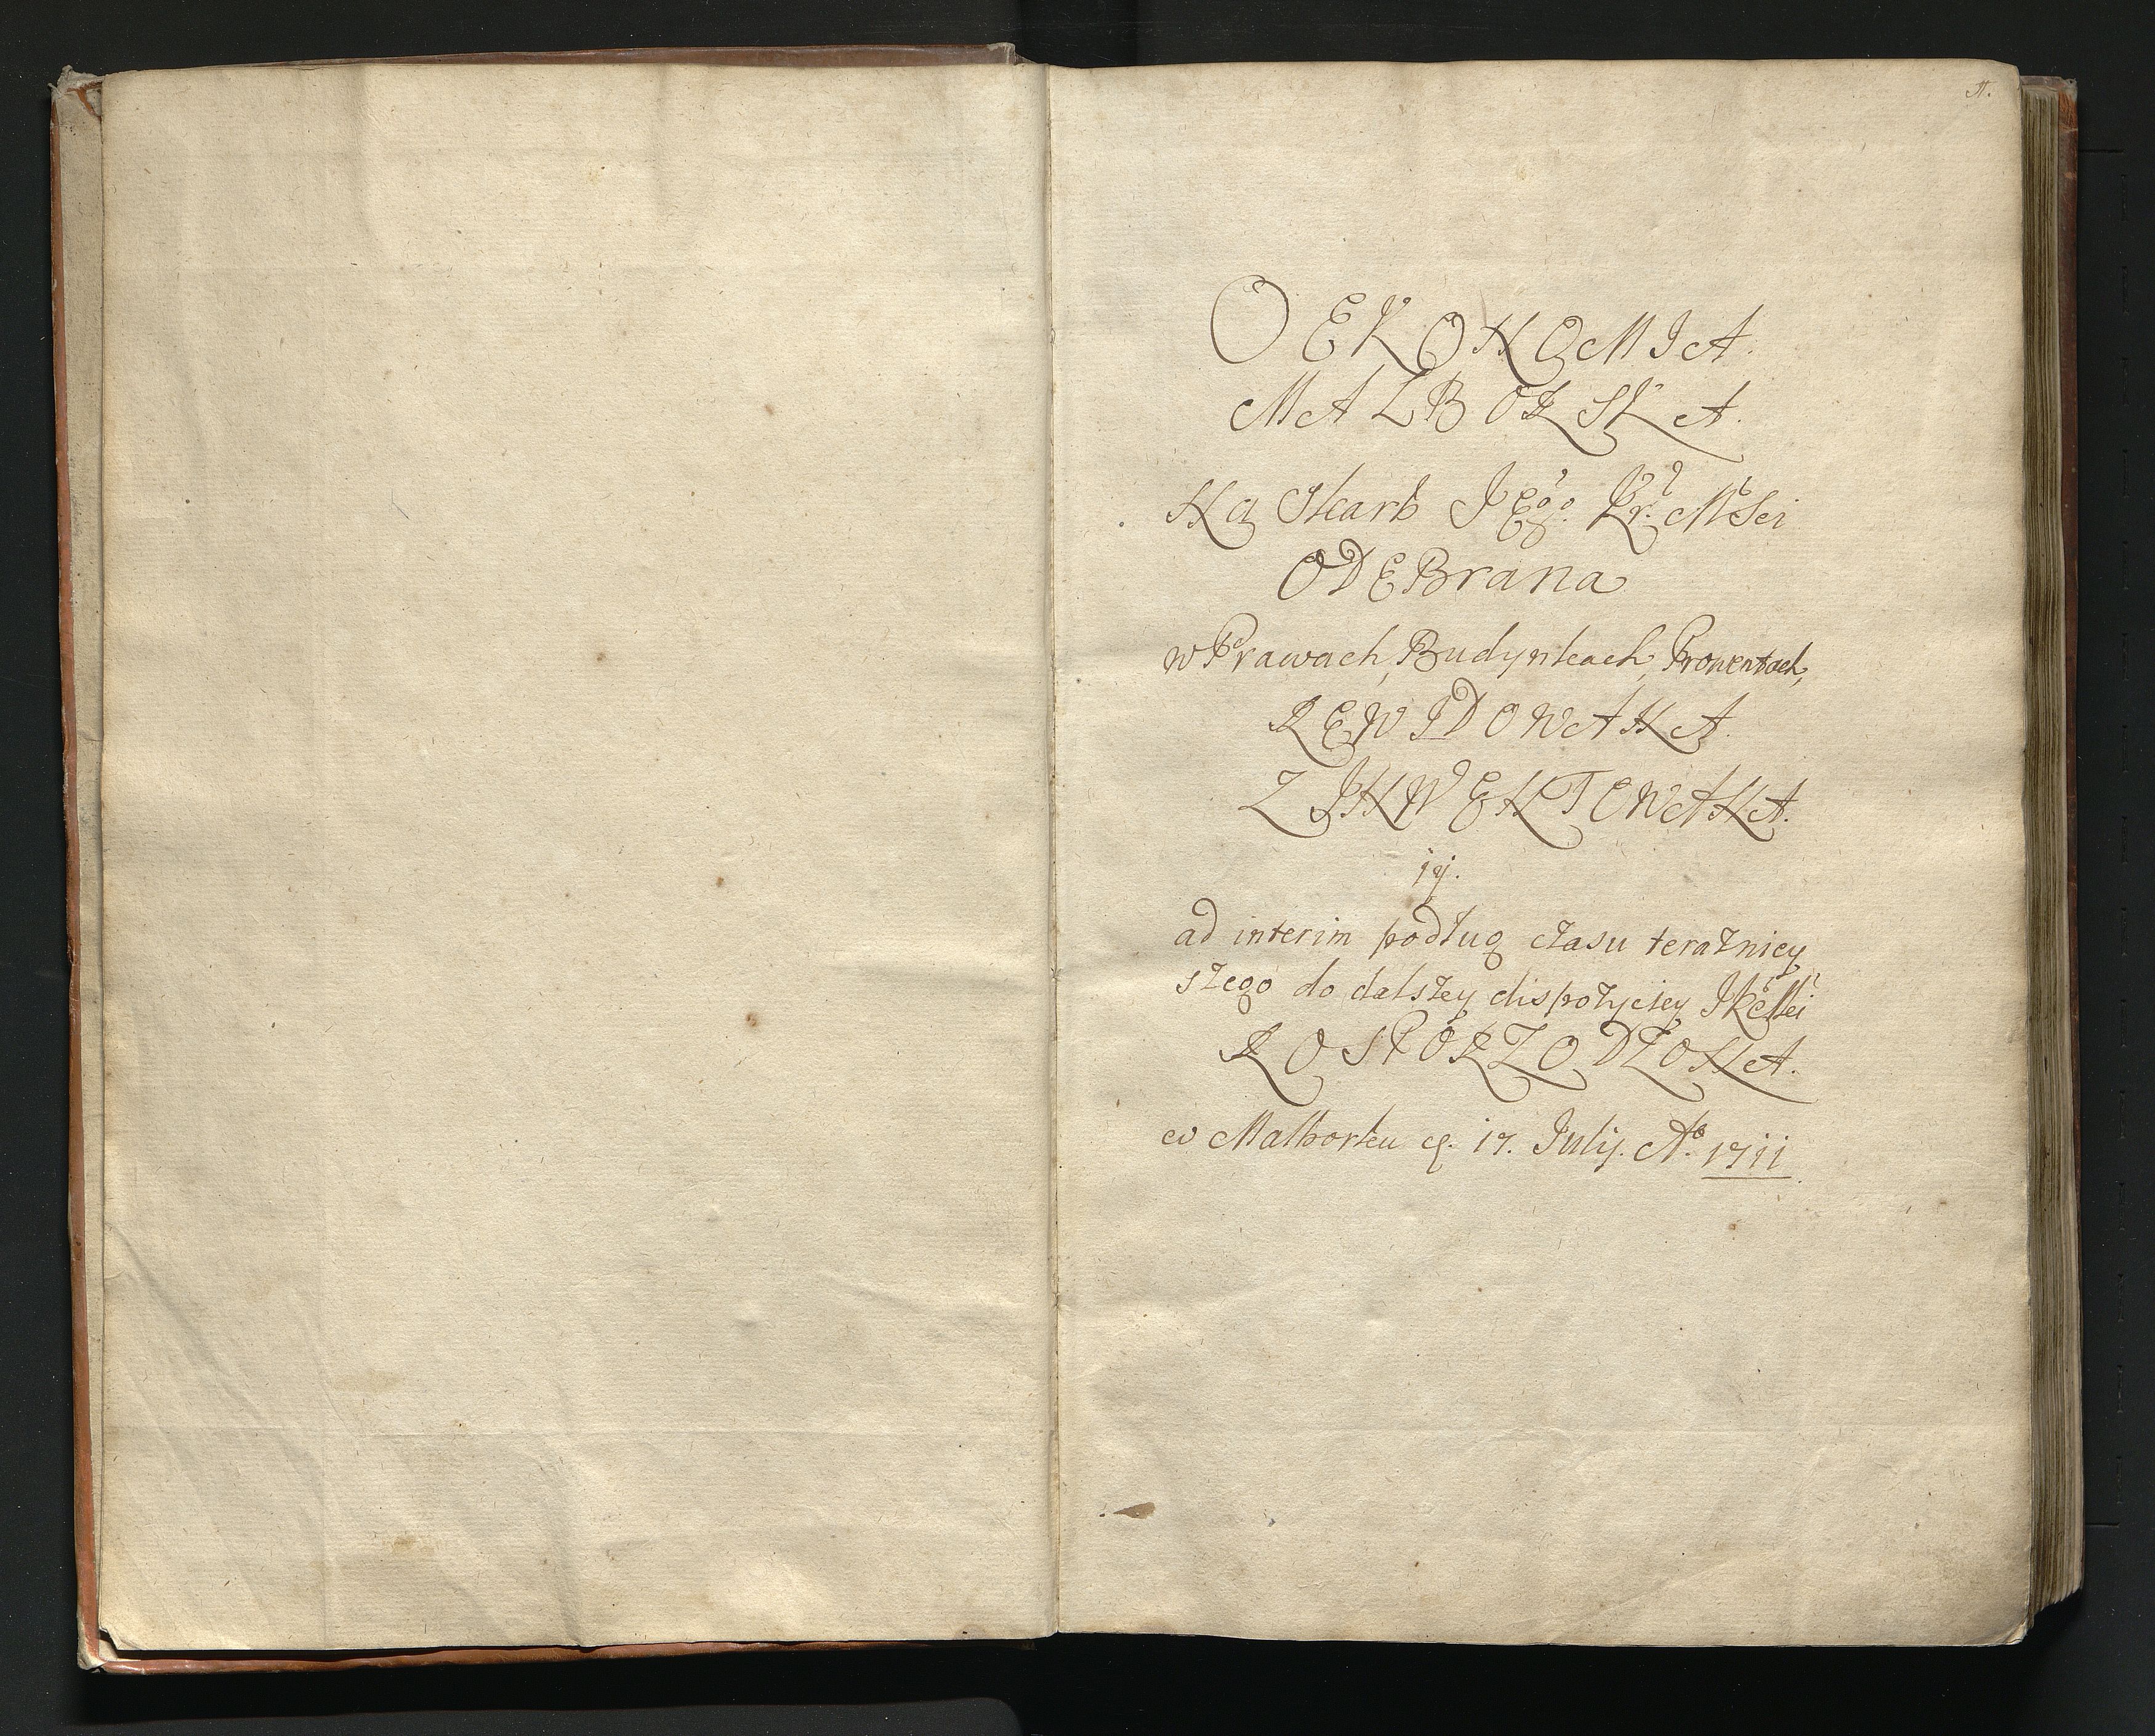 OEKONOMIA.
MALBORSKA.
Na Skarb JEgo. Kr. MSci
ODEBrana
w Prawach, Budynkach, Prowentach,
REWIDOWANA.
ZINWENTOWANA.
ad interim podług czasu terazniey
szego do dalszey dispozyciey JKMci
ROSPORZODZONA.
w Malborku d. 17. July. Ao. 1711